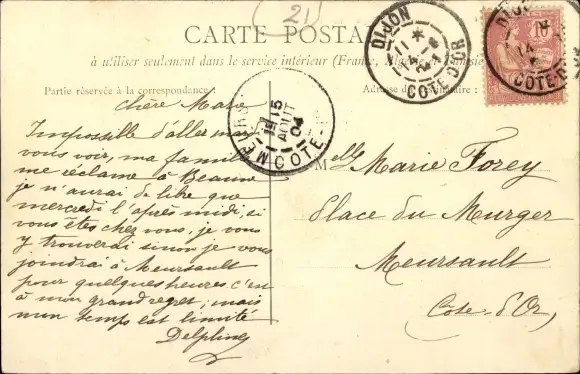 (21)
CARTE POSTALE
à utiliser seulement dans le service intérieur (France, Algérie et Tunisie
Partie réservée à la correspondance
Adresse du destinataire
DIJON
14
COTE D'OR
DIJON
14
COTE-D'OR
10
15
AOUT
04
COTE
chère Marie
Impossible d'aller
vous voir, ma famille
me réclame à Beaune
je n'aurai de libre que
mercredi l'après midi, si
vous êtes chez vous, je vous
y trouverai sinon je vous
joindrai à Meursault
pour quelques heures c'est
à mon grand regret; mais
mon temps est limité
Delphine
Melle Marie Forey
Place du Murger
Meursault
Côte-d'Or